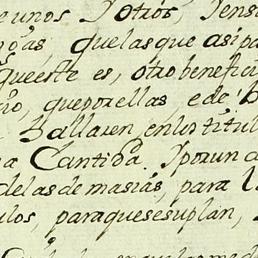 unos Iotros, Iens
quelasque asi pa
queerte es, otro benefici
queporellas, ede
Hallaren, enlostitul
a Cantida. Iporun a
delasdemasias, para l
ulos, paraquesesuplan,